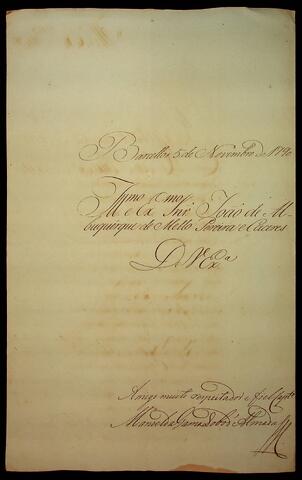 Barcellos 5 de Novembro de 1790
Illmo e Exmo Snr João de Al-
buquerque de Mello Pereira e Caceres
De V Exa
Amigo muito respeitador e fiel Captº
Manoel da Gama Lobo d'Almada